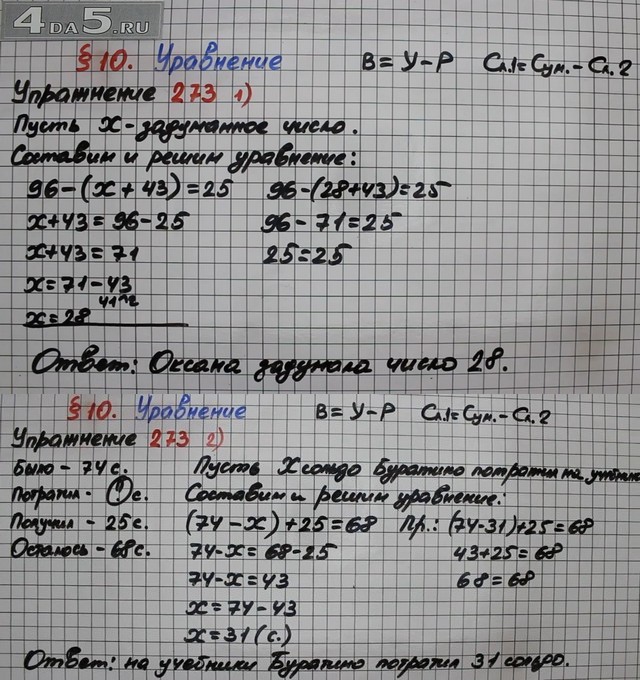 4DA5.RU
§10. Уравнение В=У-Р Сл.1=Сум.-Сл.2
Упражнение 273 1)
Пусть х-задуманное число.
Составим и решим уравнение:
96-(х+43)=25 96-(28+43)=25
х+43=96-25 96-71=25
х+43=71 25=25
х=71-43
х=28
Ответ: Оксана задумала число 28.
§10. Уравнение В=У-Р Сл.1=Сум.-Сл.2
Упражнение 273 2)
Было - 74с. Пусть Х сольдо Буратино потратил на учебник
Потратил - ?с. Составим и решим уравнение:
Получил - 25с. (74-х)+25=68 Пр.: (74-31)+25=68
Осталось - 68с. 74-х=68-25 43+25=68
74-х=43 68=68
х=74-43
х=31(с.)
Ответ: на учебники Буратино потратил 31 сольдо.